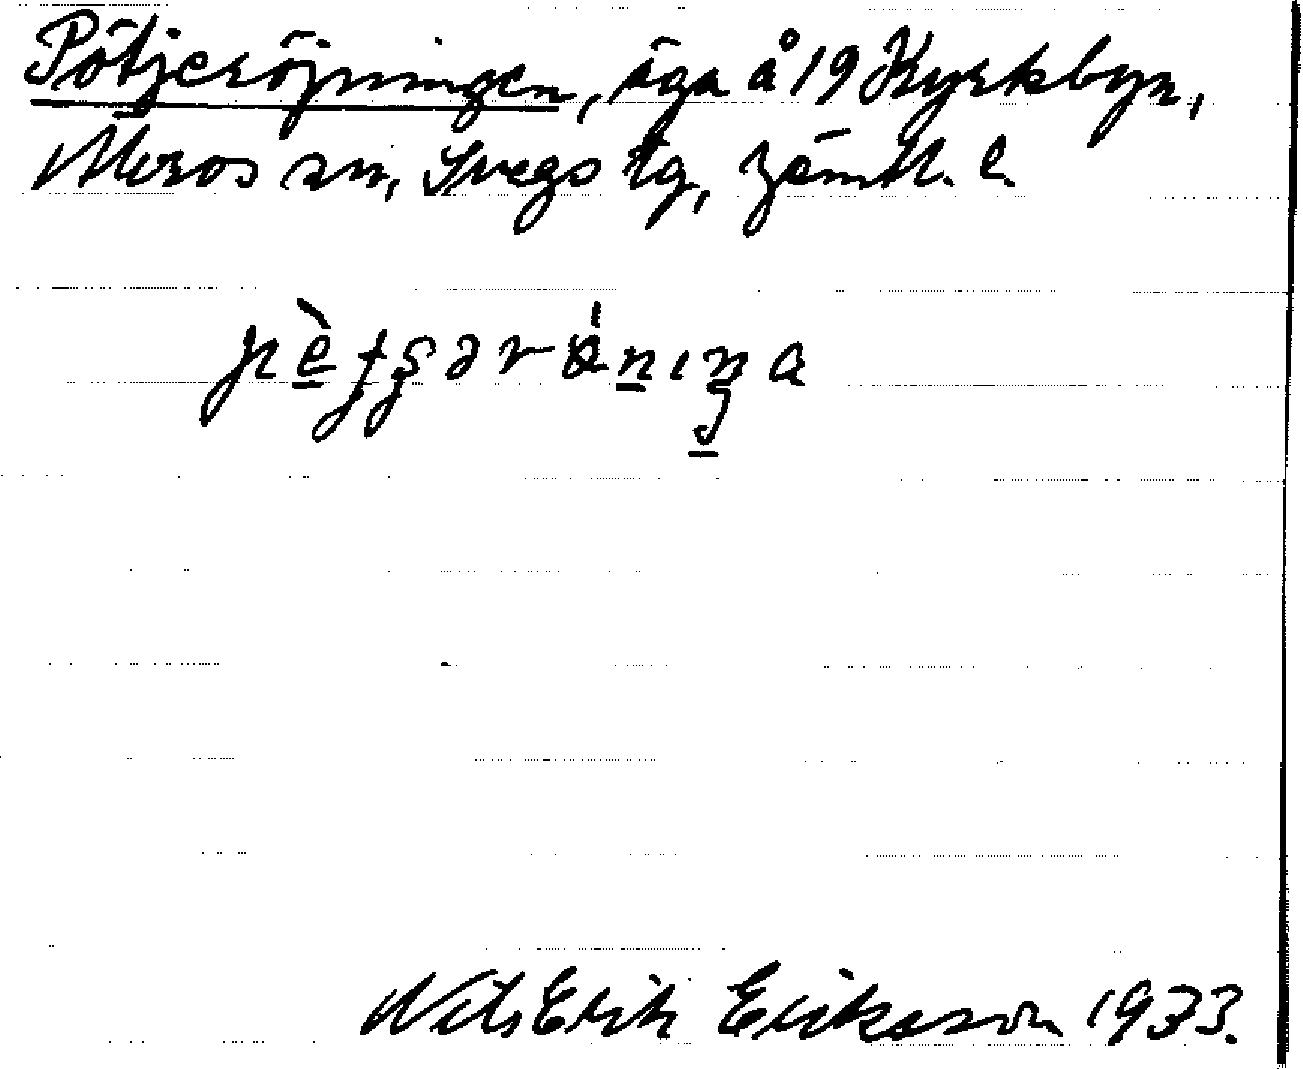 Pötjeröjningen, äga å 19 Kyrkbyn,
Överos sn, Svegs tg, Jämtl. l.
Nils Erik Eriksson 1933.